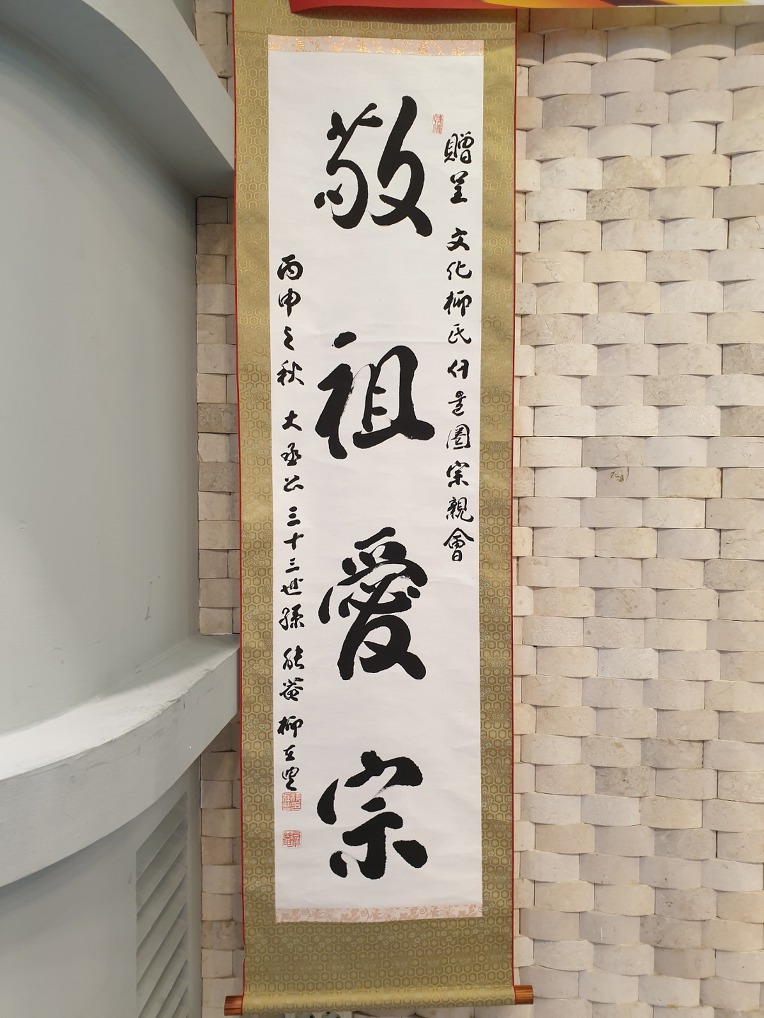 贈呈 文化柳氏 서울圈宗親會
敬祖愛宗
丙申之秋 大丞公 三十三世孫 能菴 柳在